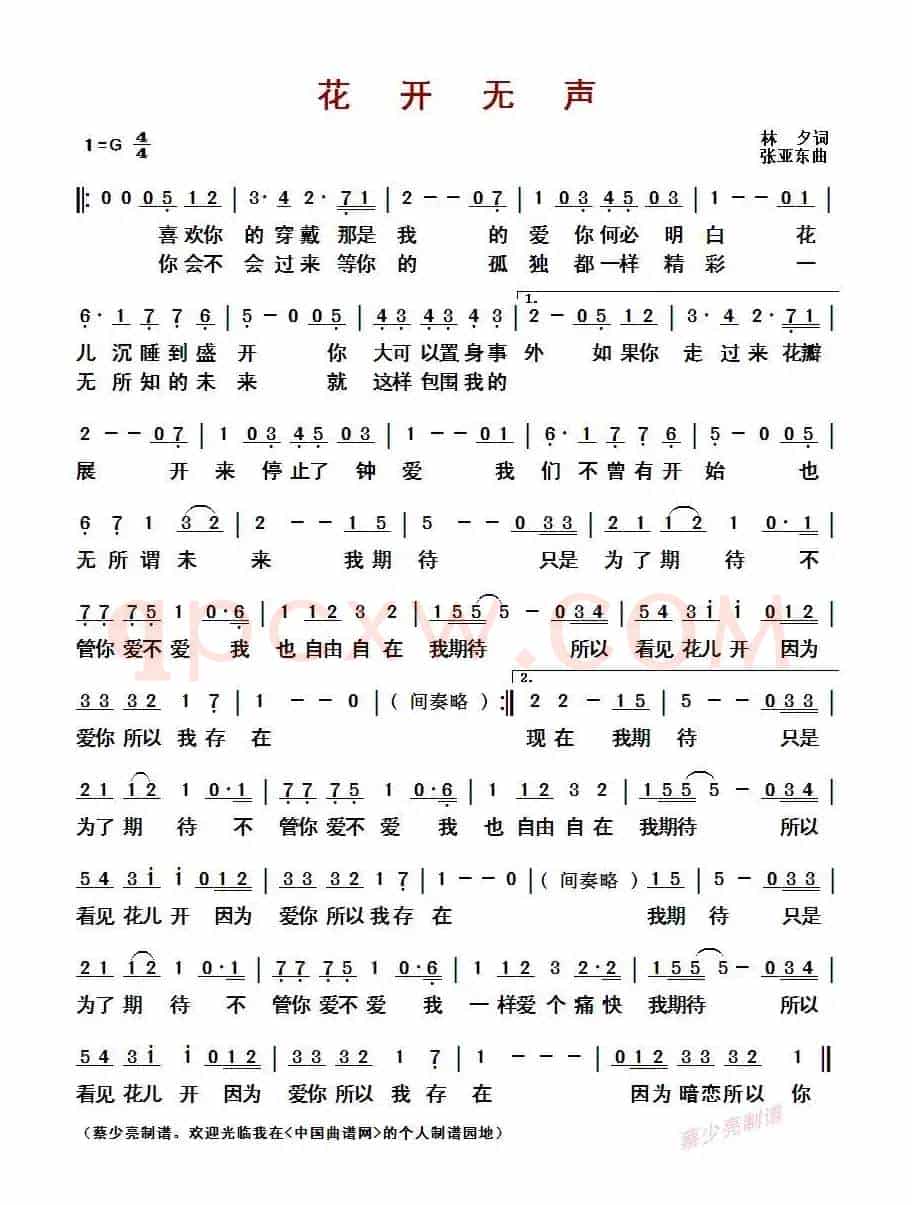 花 开 无 声
1=G 4/4
林 夕词
张亚东曲
‖: 0 0 0 5 1 2 | 3· 4 2· 7 1 | 2 - - 0 7 | 1 0 3 4 5 0 3 | 1 - - 0 1 |
喜欢你 的 穿戴 那是 我 的 爱 你何必 明 白 花
你会不 会过来 等你 的 孤 独 都一样 精彩 一
1.
6· 1 7 7 6 | 5 - 0 0 5 | 4 3 4 3 4 3 | 2 - 0 5 1 2 | 3· 4 2· 7 1 |
儿 沉睡到盛 开 你 大可以置身事 外 如果你 走过来 花瓣
无 所知的未 来 就 这样包围我的
2 - - 0 7 | 1 0 3 4 5 0 3 | 1 - - 0 1 | 6· 1 7 7 6 | 5 - 0 0 5 |
展 开 来 停止了 钟 爱 我 们 不曾有开 始 也
6 7 1 3 2 | 2 - - 1 5 | 5 - - 0 3 3 | 2 1 1 2 1 0· 1 |
无所谓未 来 我期 待 只是 为了期 待 不
7 7 7 5 1 0· 6 | 1 1 2 3 2 | 1 5 5 5 - 0 3 4 | 5 4 3 i i 0 1 2 |
管你 爱不 爱 我 也 自由 自 在 我期待 所以 看见 花儿 开 因为
2.
3 3 3 2 1 7 | 1 - - 0 | ( 间奏略 ) :‖ 2 2 - 1 5 | 5 - - 0 3 3 |
爱你 所以 我存 在 现 在 我期 待 只是
2 1 1 2 1 0· 1 | 7 7 7 5 1 0· 6 | 1 1 2 3 2 | 1 5 5 5 - 0 3 4 |
为了 期 待 不 管你 爱不 爱 我 也 自由 自 在 我期待 所以
5 4 3 i i 0 1 2 | 3 3 3 2 1 7 | 1 - - 0 | ( 间奏略 ) 1 5 | 5 - - 0 3 3 |
看见 花儿 开 因为 爱你 所以 我存 在 我期 待 只是
2 1 1 2 1 0· 1 | 7 7 7 5 1 0· 6 | 1 1 2 3 2·2 | 1 5 5 5 - 0 3 4 |
为了 期 待 不 管你 爱不 爱 我 一 样爱 个 痛快 我期待 所以
5 4 3 i i 0 1 2 | 3 3 3 2 1 7 | 1 - - - | 0 1 2 3 3 3 2 1 ‖
看见 花儿 开 因为 爱你 所以 我 存 在 因为暗恋所以 你
（蔡少亮制谱。欢迎光临我在<中国曲谱网>的个人制谱园地）
蔡少亮制谱
qpcxw.COM